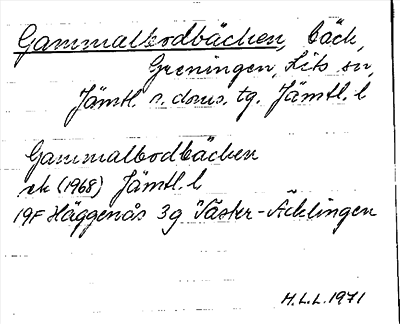 Gammalbodbäcken, bäck,
Greningen, Lits sn,
Jämtl. n. doms. tg. Jämtl. l
Gammalbodbäcken
ek (1968) Jämtl. l
19F Häggenås 3g Väster-Acklingen
H.L.L. 1971